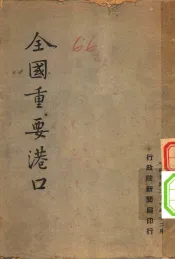 全國重要港口
66
行政院新聞局印行